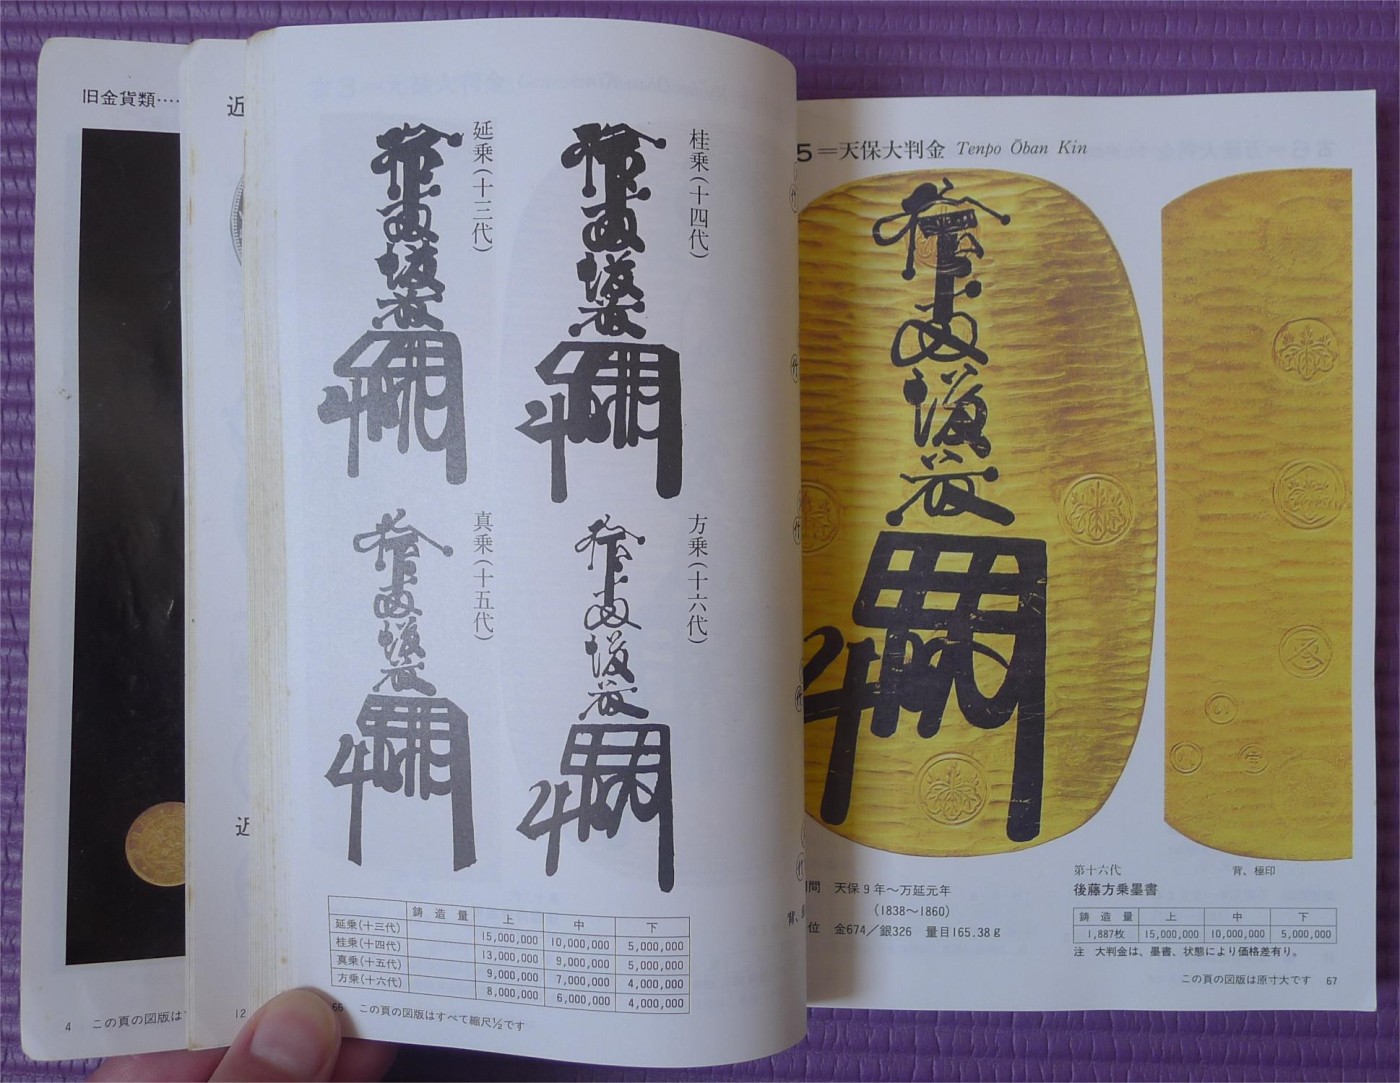 旧金貨類‥‥
近
近
4
この頁の図版は
12
桂乗(十四代)
延乗(十三代)
方乗(十六代)
真乗(十五代)
鋳造量 上 中 下
延乗(十三代) 15,000,000 10,000,000 5,000,000
桂乗(十四代) 13,000,000 9,000,000 5,000,000
真乗(十五代) 9,000,000 7,000,000 4,000,000
方乗(十六代) 8,000,000 6,000,000 4,000,000
66 この頁の図版はすべて縮尺½です
5=天保大判金 Tenpo Ōban Kin
間 天保9年〜万延元年
(1838〜1860)
位 金674/銀326 量目165.38g
背、
第十六代
後藤方乗墨書
背、極印
鋳造量 上 中 下
1,887枚 15,000,000 10,000,000 5,000,000
注 大判金は、墨書、状態により価格差有り。
この頁の図版は原寸大です 67